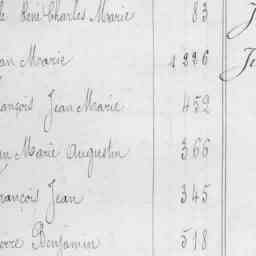 le René Charles Marie 83
an Marie 1226
ançois Jean Marie 452
n Marie Augustin 366
rançois Jean 345
erre Benjamin 518